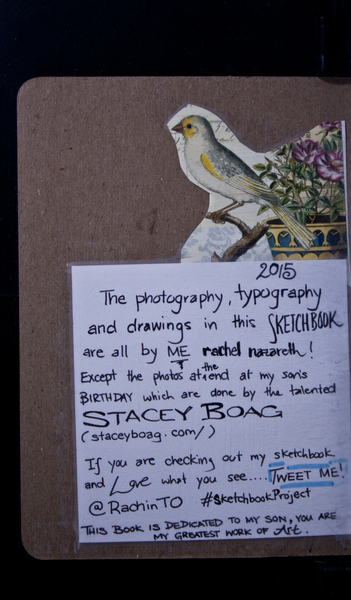 2015
The photography, typography
and drawings in this SKETCHBOOK
are all by ME rachel nazareth!
Except the photos at the end at my son's
BIRTHDAY which are done by the talented
STACEY BOAG
(staceyboag.com/)
If you are checking out my sketchbook
and Love what you see.... TWEET ME!
@RachinTO #sketchbookProject
THIS BOOK IS DEDICATED TO MY SON, YOU ARE
MY GREATEST WORK OF Art.